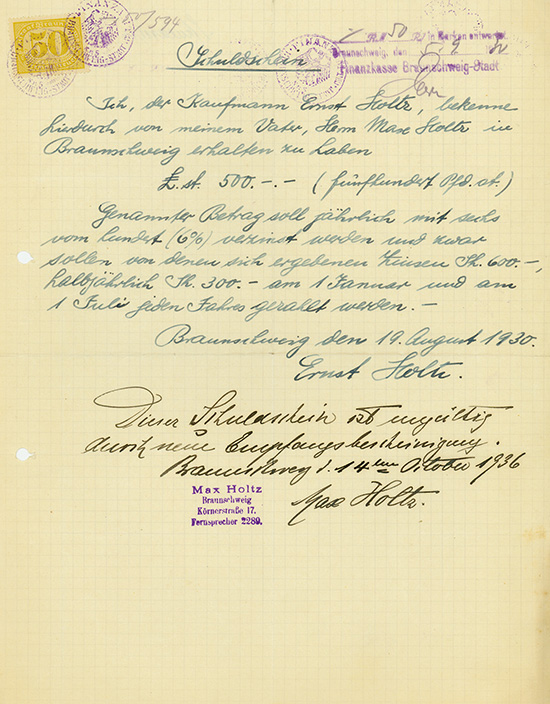 50
594
50 in Marken entwertet.
Braunschweig, den 5. 9. 30
Finanzkasse Braunschweig-Stadt
Schuldschein
Ich, der Kaufmann Ernst Holtz, bekenne
hierdurch von meinem Vater, Herrn Max Holtz in
Braunschweig erhalten zu haben
£.st. 500.-.- (fünfhundert Pfd. st.)
Genannter Betrag soll jährlich mit sechs
vom hundert (6%) verzinst werden und zwar
sollen von denen sich ergebenen Zinsen Sh. 600.-,
halbjährlich Sh. 300.- am 1 Januar und am
1 Juli jeden Jahres gezahlt werden.-
Braunschweig den 19. August 1930.
Ernst Holtz.
Dieser Schuldschein ist ungültig
durch neue Empfangsbescheinigung.
Braunschweig d. 14 ten October 1936
Max Holtz.
Max Holtz
Braunschweig
Körnerstraße 17.
Fernsprecher 2289.